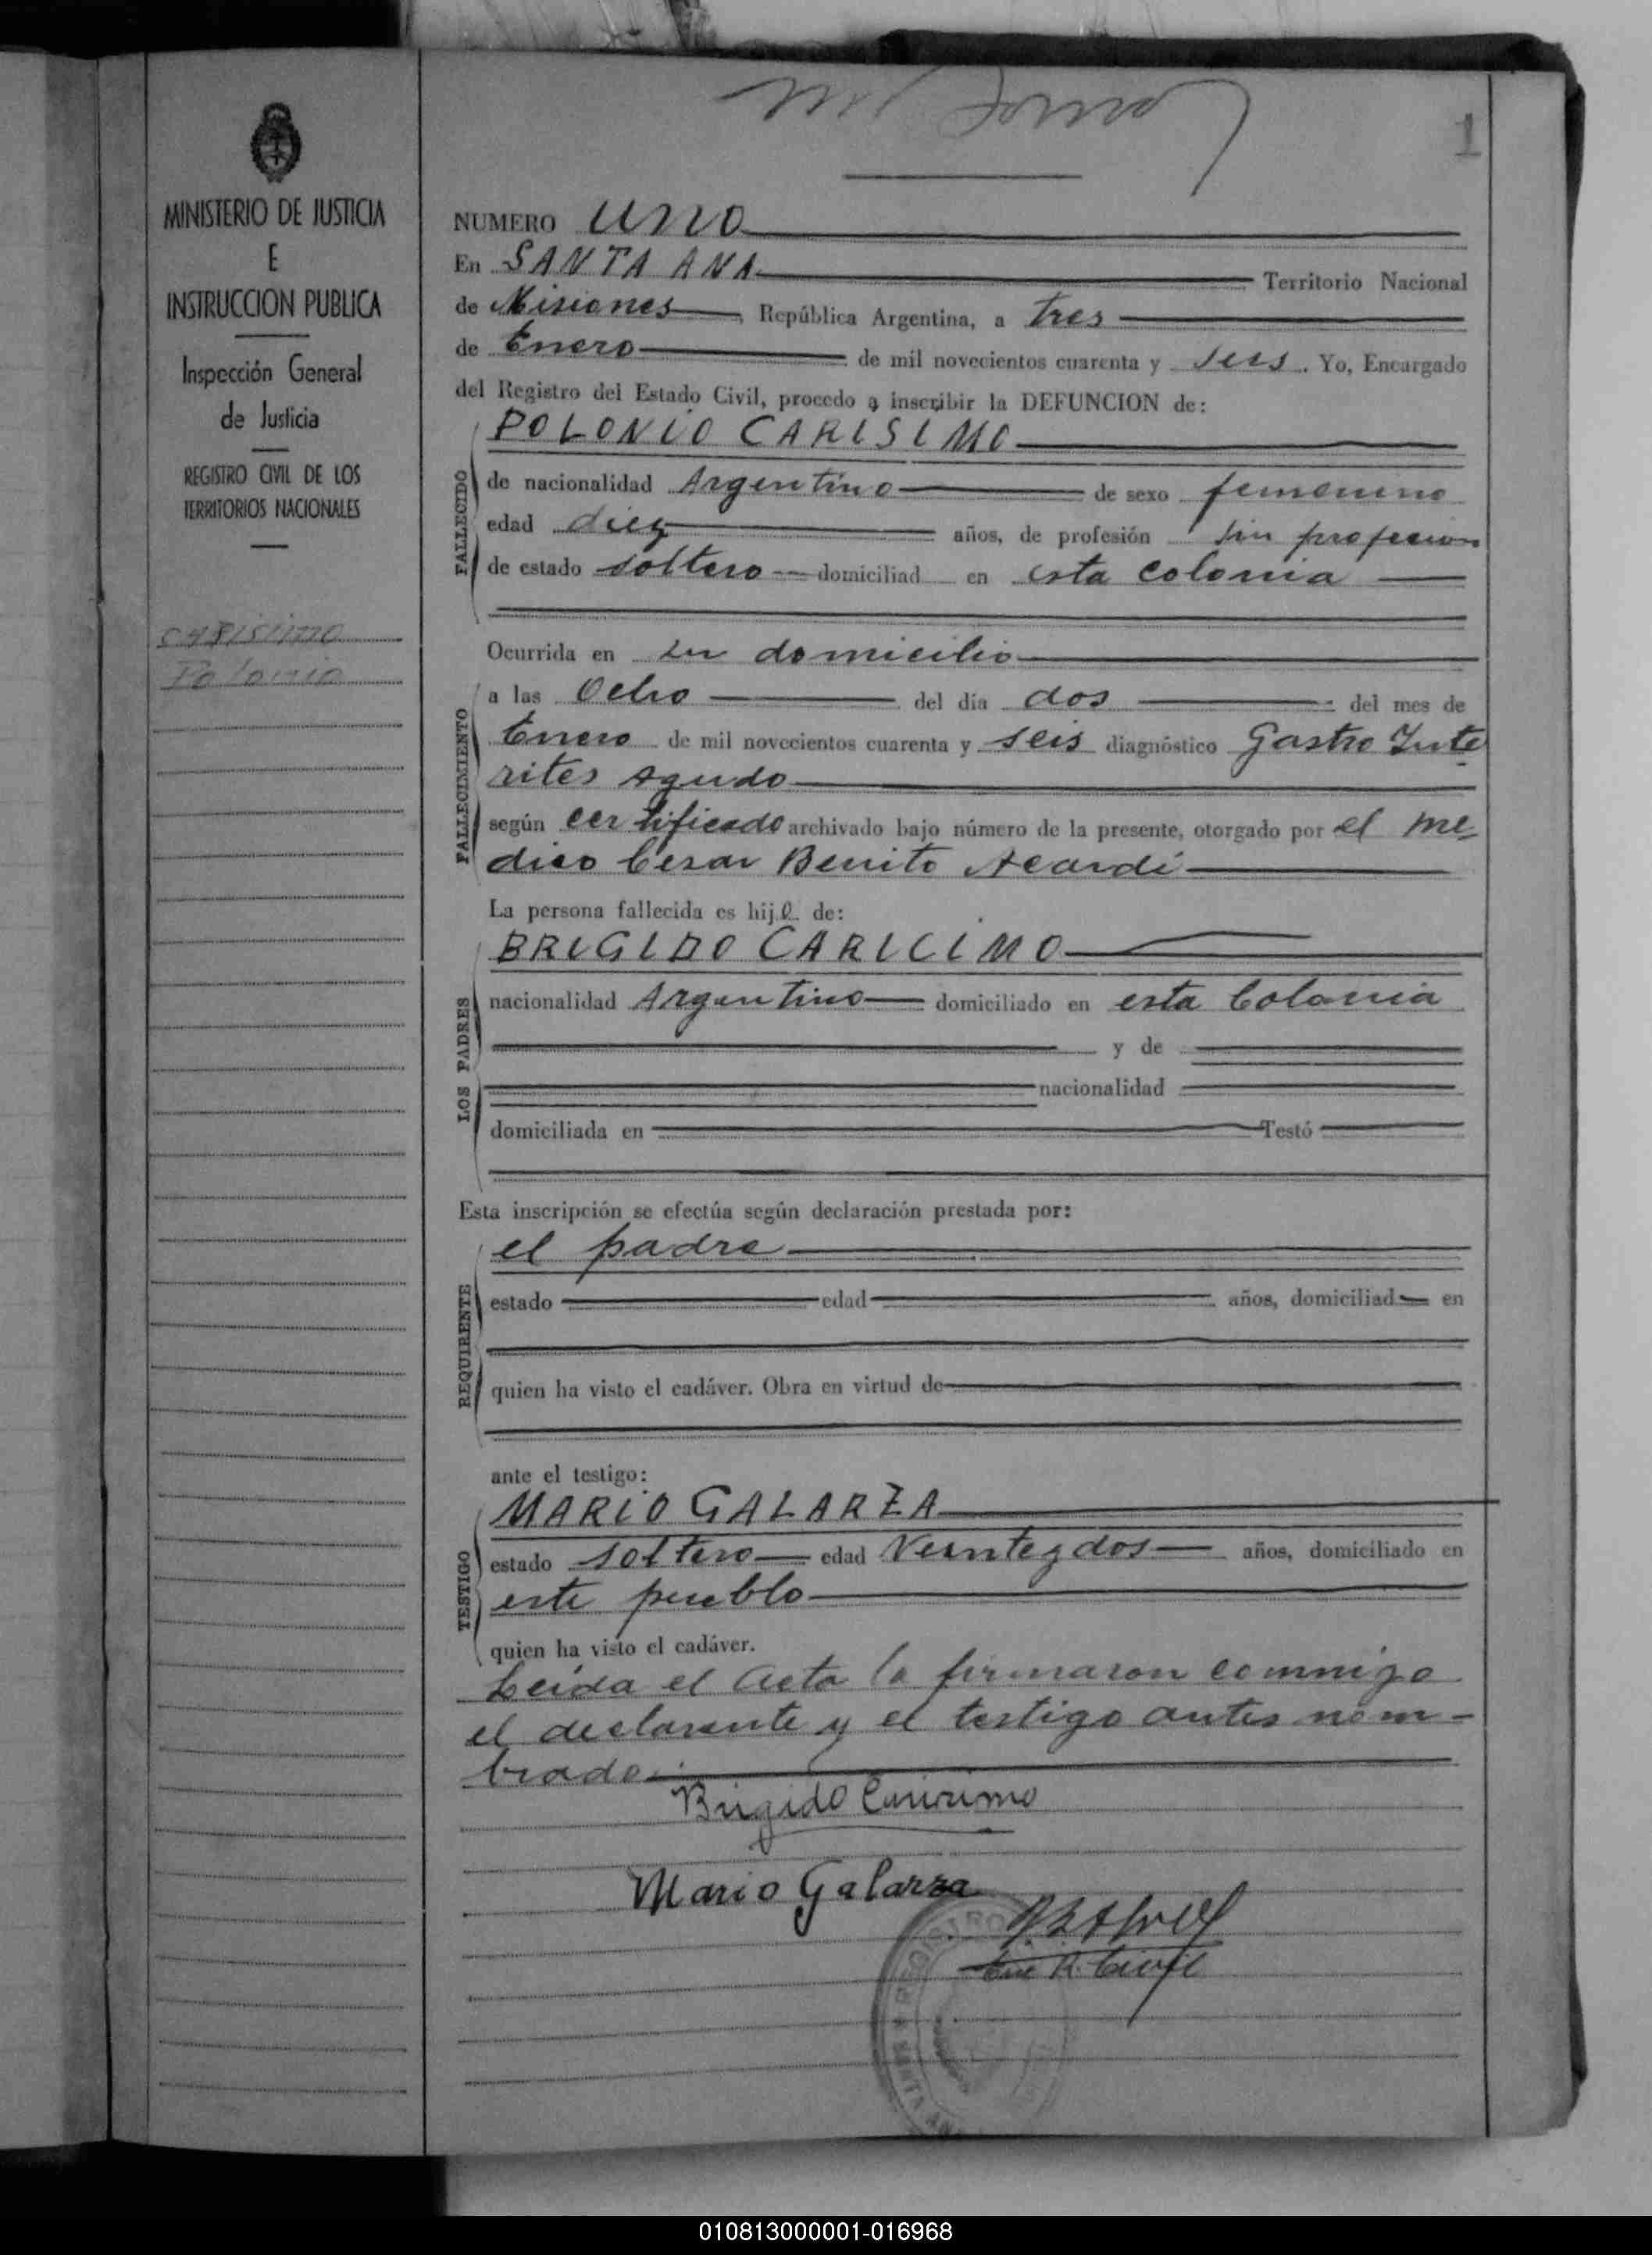 1
MINISTERIO DE JUSTICIA
E
INSTRUCCION PUBLICA
Inspección General
de Justicia
REGISTRO CIVIL DE LOS
TERRITORIOS NACIONALES
CARISIMO
Polonio
NUMERO uno
En SANTA ANA Territorio Nacional
de Misiones, República Argentina, a tres
de Enero de mil novecientos cuarenta y seis. Yo, Encargado
del Registro del Estado Civil, procedo a inscribir la DEFUNCION de:
POLONIO CARISIMO
FALLECIDO
de nacionalidad Argentino de sexo femenino
edad diez años, de profesión sin profesion
de estado soltero domiciliad en esta colonia
Ocurrida en su domicilio
FALLECIMIENTO
a las Ocho del día dos del mes de
Enero de mil novecientos cuarenta y seis diagnóstico Gastro Inte
rites Agudo
según certificado archivado bajo número de la presente, otorgado por el me-
dico Cesar Benito Acardi
La persona fallecida es hijo de:
BRIGIDO CARICIMO
LOS PADRES
nacionalidad Argentino domiciliado en esta Colonia
y de
nacionalidad
domiciliada en Testó
Esta inscripción se efectúa según declaración prestada por:
el padre
REQUIRENTE
estado edad años, domiciliad en
quien ha visto el cadáver. Obra en virtud de
ante el testigo:
MARIO GALARZA
TESTIGO
estado soltero edad Veinteydos años, domiciliado en
este pueblo
quien ha visto el cadáver.
Leida el Acta la firmaron conmigo
el declarante y el testigo antes nom-
brado.
Brigido Caricimo
Mario Galarza
Enc R. Civil
REGISTRO
SANTA ANA
010813000001-016968